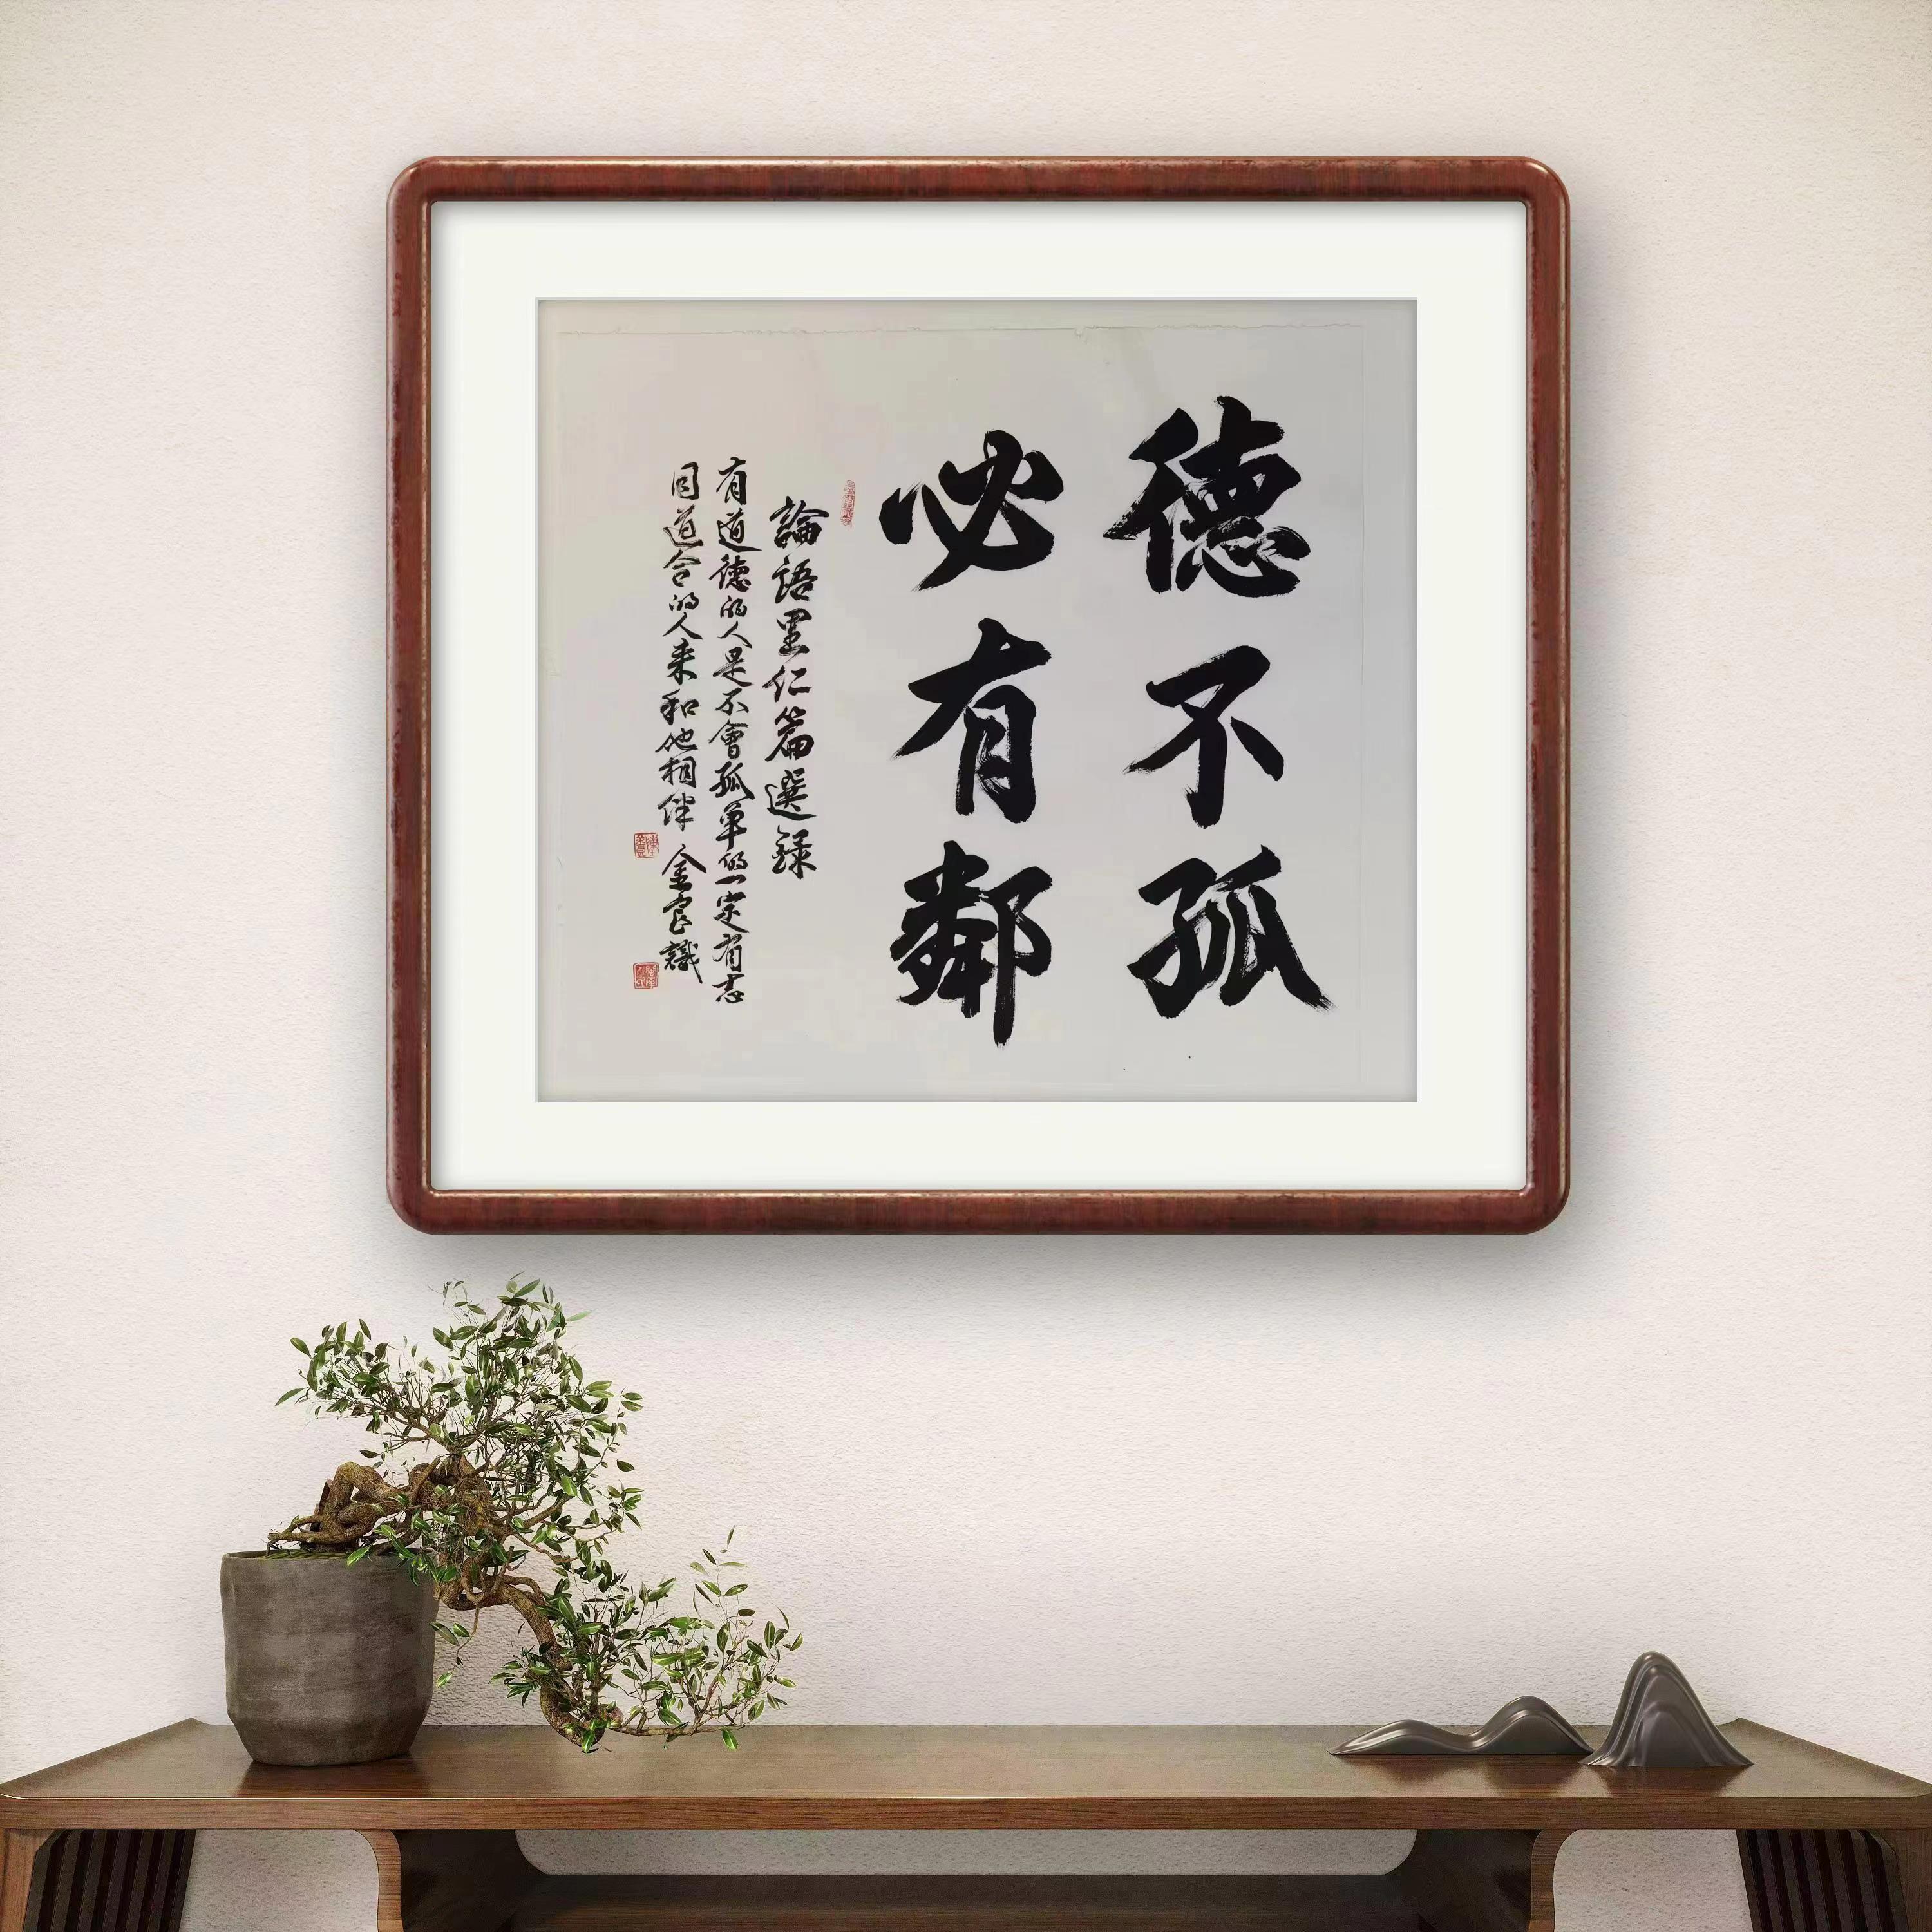 德不孤
必有鄰
論語里仁篇選録
有道德的人是不會孤單的一定有志
同道合的人来和他相伴 金良識